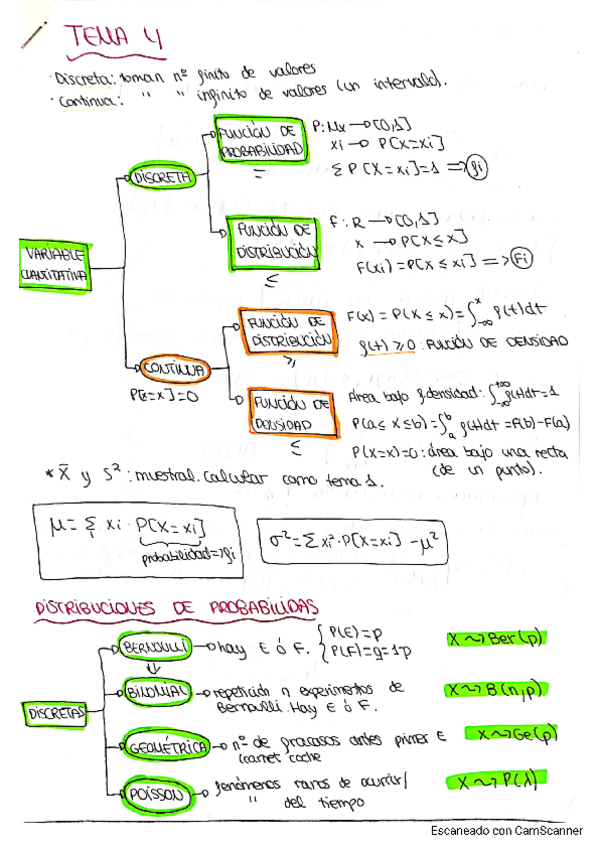 TEMA 4
· Discreta: toman nº finito de valores
· Continua: " " infinito de valores (un intervalo).
VARIABLE CUANTITATIVA
DISCRETA
FUNCIÓN DE PROBABILIDAD
=
P: Nx → [0,1]
xi → P[X=xi]
Σ P[X=xi]=1 ⟹ fi
FUNCIÓN DE DISTRIBUCIÓN
≤
F: R → [0,1]
x → P[X≤x]
F(xi) = P[X≤xi] ⟹ Fi
CONTINUA
P[X=x]=0
FUNCIÓN DE DISTRIBUCIÓN
≥
F(x) = P(X≤x) = ∫_{-∞}^{x} f(t)dt
f(t) ≥ 0: FUNCIÓN DE DENSIDAD
FUNCIÓN DE DENSIDAD
≤
Área bajo f.densidad: ∫_{-∞}^{+∞} f(t)dt=1
P(a≤X≤b) = ∫_{a}^{b} f(t)dt = F(b)-F(a)
P(X=x)=0: área bajo una recta
(de un punto).
* X̄ y S²: muestral. Calcular como tema 1.
μ = Σ_i xi · P[X=xi]
probabilidad ⟹ fi
σ² = Σ xi² · P[X=xi] - μ²
DISTRIBUCIONES DE PROBABILIDAS
DISCRETAS
BERNOULLI → hay E ó F. { P(E)=p
P(F)=q=1-p
X ~ Ber(p)
BINOMIAL → repetición n experimentos de
Bernoulli. Hay E ó F.
X ~ B(n,p)
GEOMÉTRICA → nº de fracasos antes primer E
(carnet coche
X ~ Ge(p)
POISSON → fenómenos raros de ocurrir/
" del tiempo
X ~ P(λ)
Escaneado con CamScanner